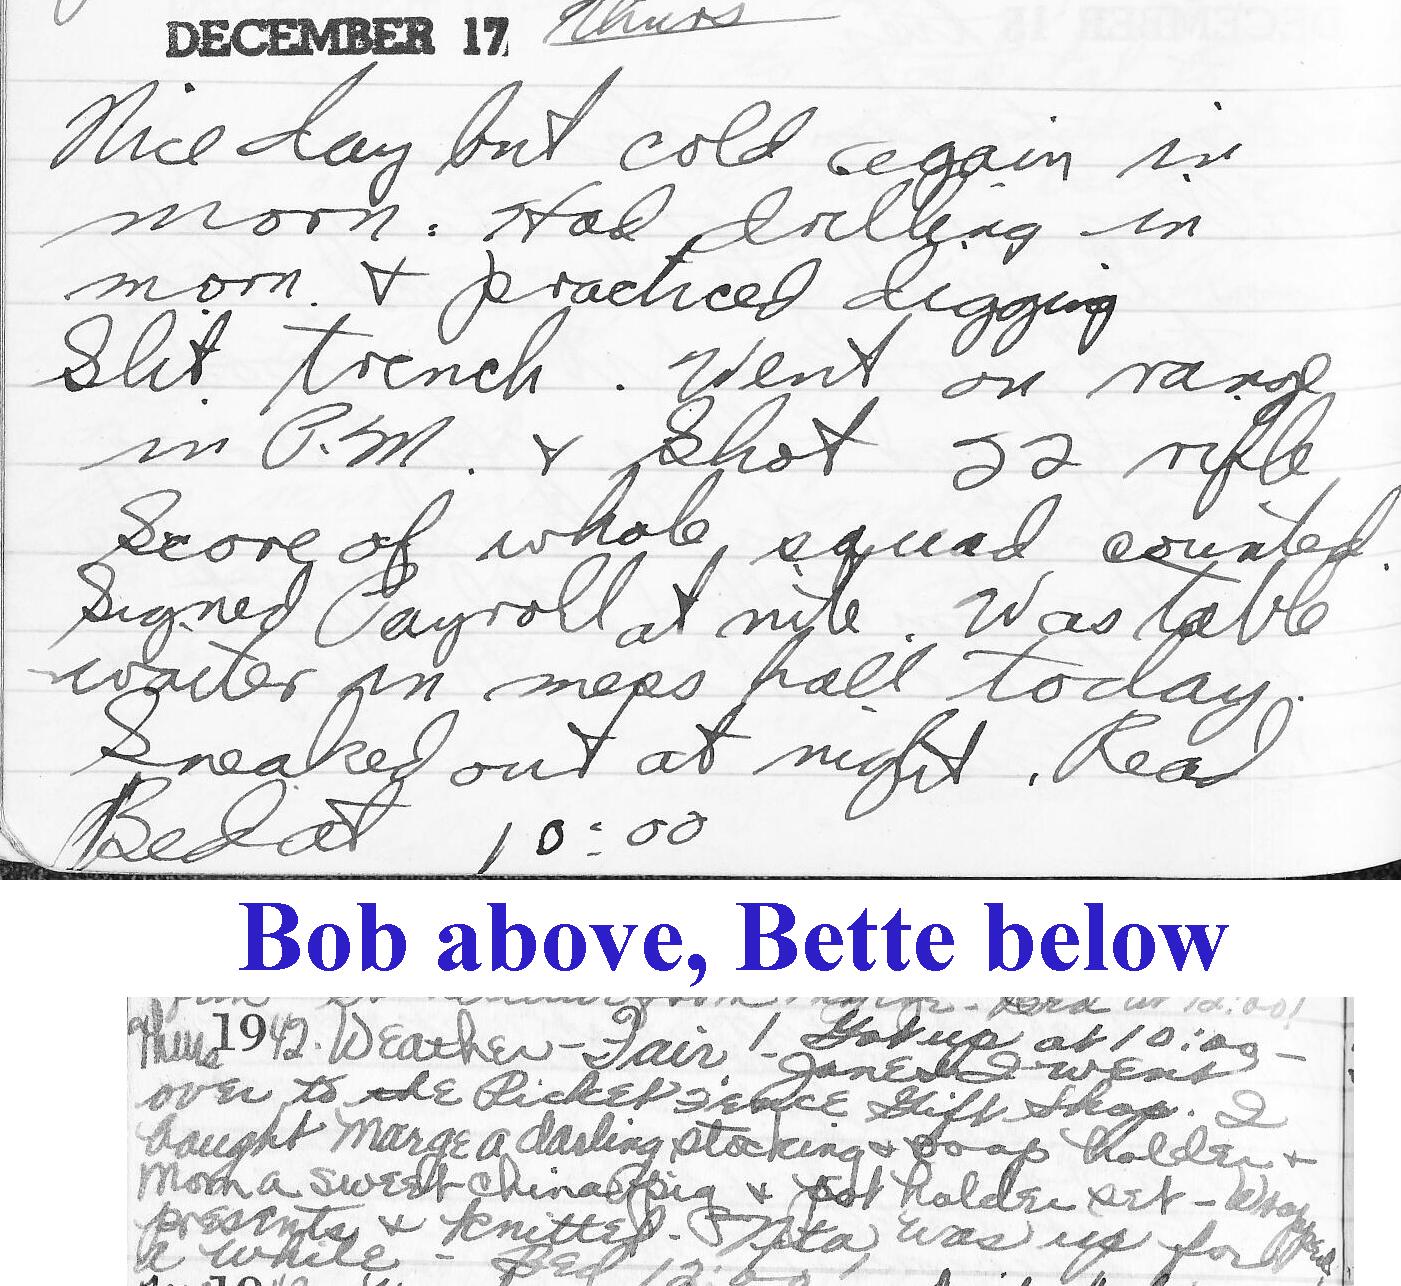 DECEMBER 17 Thurs
Nice day but cold again in
morn. Had drilling in
morn. & practiced digging
Slit trench. Went on range
in P.M. & Shot 22 rifle
Score of whole squad counted.
Signed Payroll at nite. Was table
waiter in mess hall today.
Sneaked out at night. Read
Bed at 10:00
Bob above, Bette below
Bed at 12:00!
Thurs 1942. Weather - Fair! Got up at 10:00 -
Jane & I went
over to the Picket Fence Gift Shop. I
bought Marge a darling stocking & soap holder &
Mom a sweet china pig & pot holder set - Wrapped
presents & knitted. Nita was up for
a while - Bed 12:00!
19